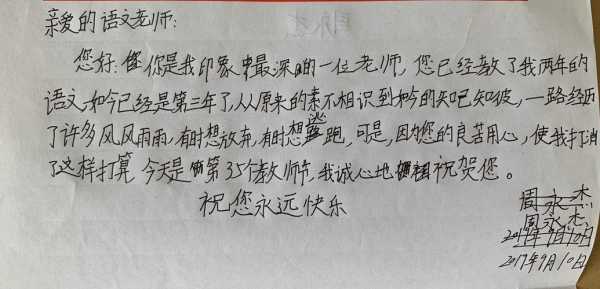 亲爱的语文老师:
您好!你是我印象中最深的一位老师,您已经教了我两年的
语文,如今已经是第三年了,从原来的素不相识到如今的知己知彼,一路经历
了许多风风雨雨,有时想放弃,有时想逃跑,可是,因为您的良苦用心,使我打消
了这样打算,今天是第35个教师节,我诚心地祝贺您。
祝您永远快乐
周永杰
周永杰
2017年9月10日
2017年9月10日